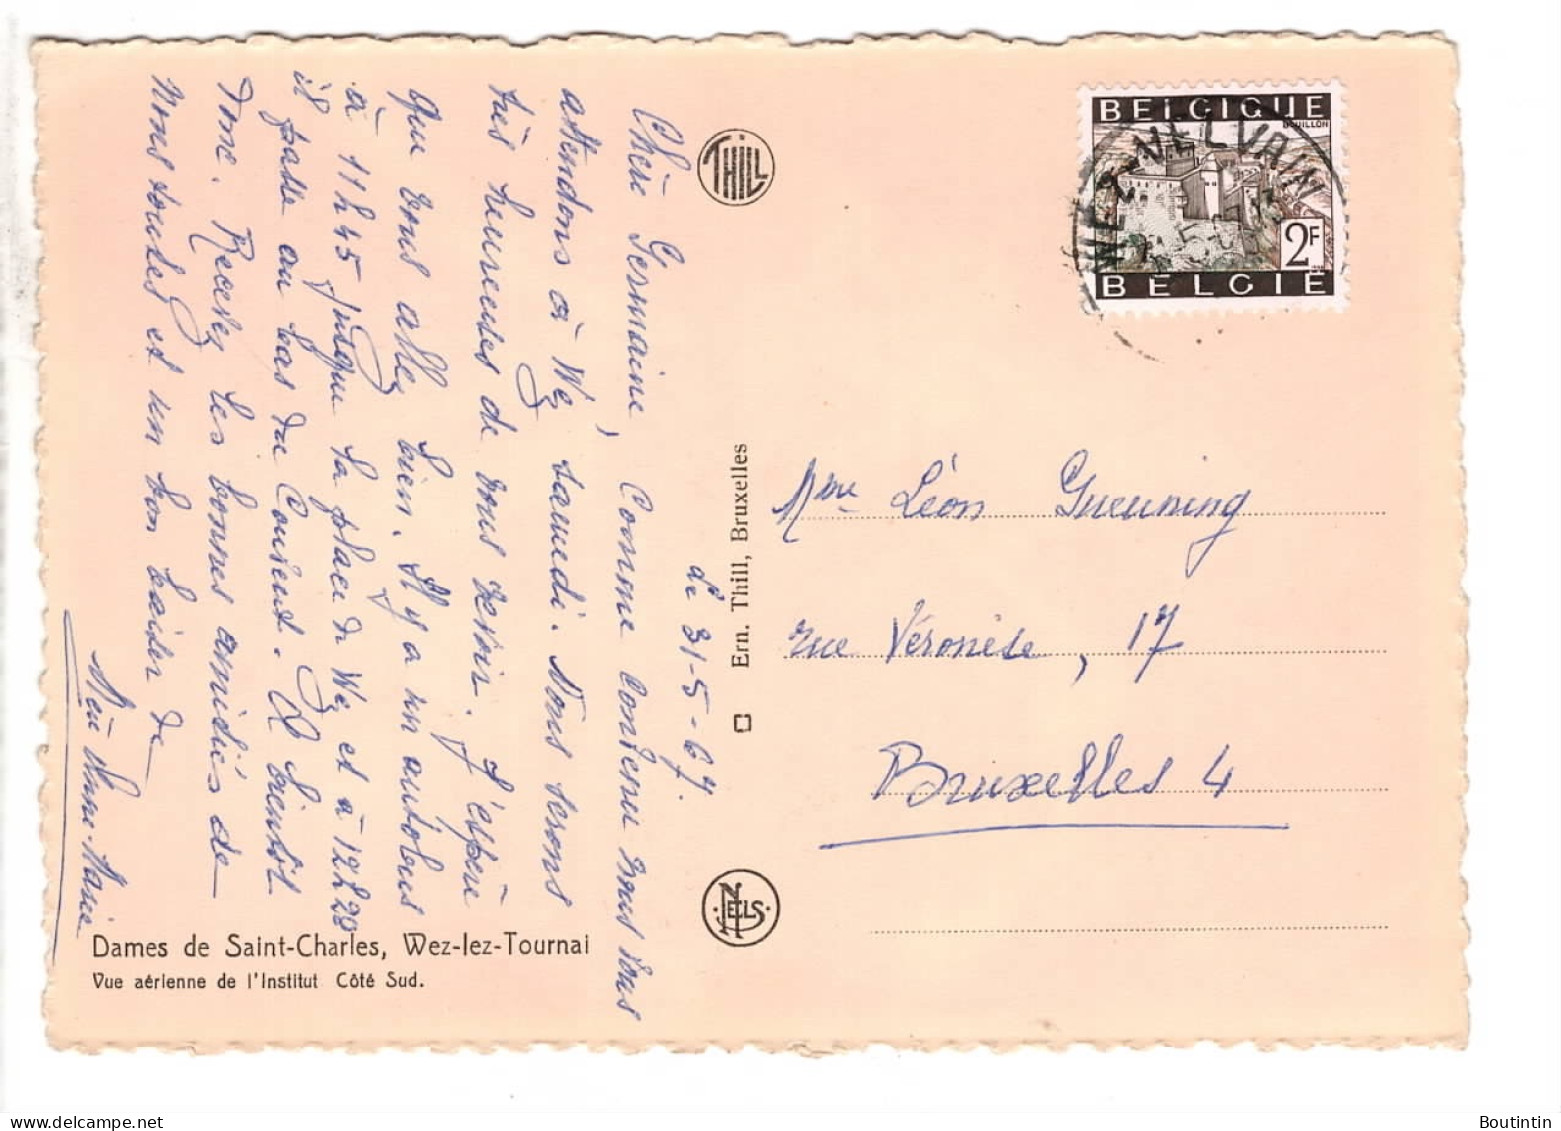 Le 31-5-67.
Chère Germaine,
Comme convenu nous vous
attendons à Wez samedi. Nous serons
très heureuses de vous revoir. J'espère
que vous allez bien. Il y a un autobus
à 11h45 jusque la place de Wez et à 12h20
il passe au bas du Couvent. A bientôt
donc. Recevez les bonnes amitiés de
nous toutes et un bon baiser de
Sœur Anne-Marie
Dames de Saint-Charles, Wez-lez-Tournai
Vue aérienne de l'Institut Côté Sud.
THILL
Ern. Thill, Bruxelles
NELS
BELGIQUE
BOUILLON
2F
BELGIE
WEZ-VELVAIN
Mme Léon Gueuning
rue Véronèse, 17
Bruxelles 4
Boutintin